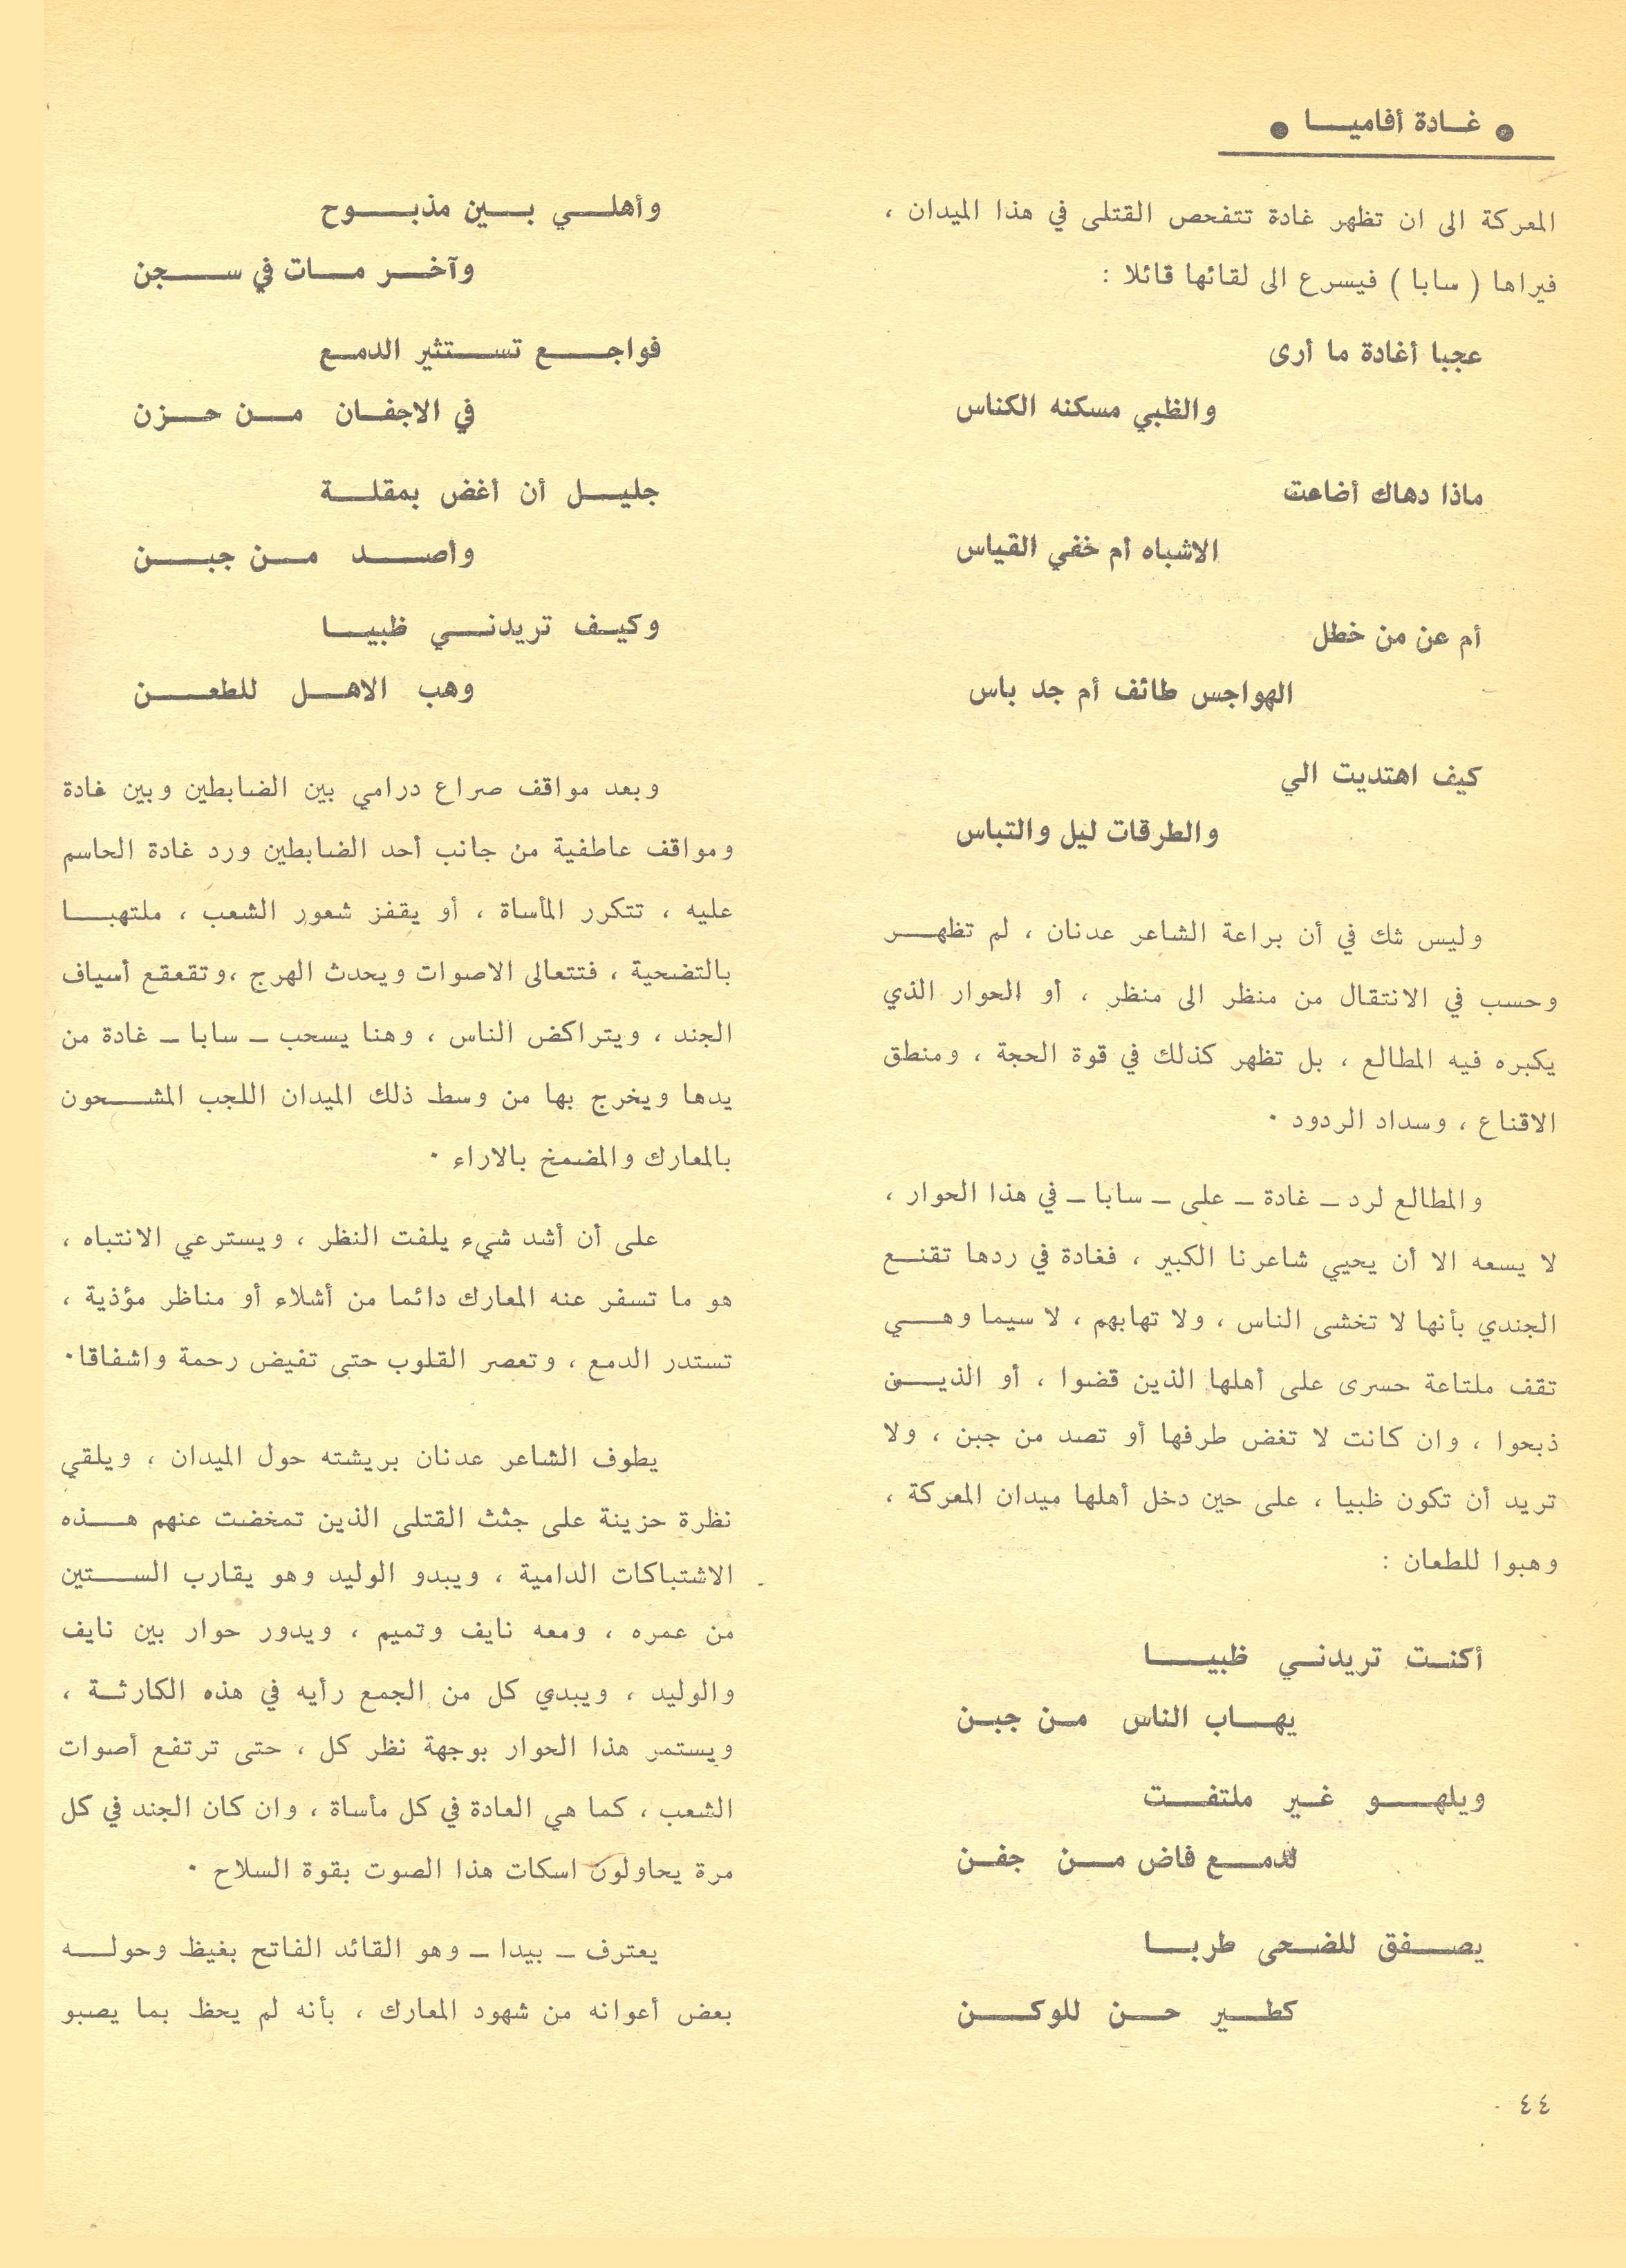 ● غادة أفاميا ●
المعركة الى ان تظهر غادة تتفحص القتلى في هذا الميدان ،
فيراها ( سابا ) فيسرع الى لقائها قائلا :
عجبا أغادة ما أرى
والظبي مسكنه الكناس
ماذا دهاك أضاعت
الاشباه أم خفي القياس
أم عن من خطل
الهواجس طائف أم جد باس
كيف اهتديت الي
والطرقات ليل والتباس
وليس شك في أن براعة الشاعر عدنان ، لم تظهر
وحسب في الانتقال من منظر الى منظر ، أو الحوار الذي
يكبره فيه المطالع ، بل تظهر كذلك في قوة الحجة ، ومنطق
الاقناع ، وسداد الردود ٠
والمطالع لرد ــ غادة ــ على ــ سابا ــ في هذا الحوار ،
لا يسعه الا أن يحيي شاعرنا الكبير ، فغادة في ردها تقنع
الجندي بأنها لا تخشى الناس ، ولا تهابهم ، لا سيما وهي
تقف ملتاعة حسرى على أهلها الذين قضوا ، أو الذين
ذبحوا ، وان كانت لا تغض طرفها أو تصد من جبن ، ولا
تريد أن تكون ظبيا ، على حين دخل أهلها ميدان المعركة ،
وهبوا للطعان :
أكنت تريدني ظبيا
يهاب الناس من جبن
ويلهو غير ملتفت
لدمع فاض من جفن
يصفق للضحى طربا
كطير حن للوكن
٤٤
وأهلي بين مذبوح
وآخر مات في سجن
فواجع تستثير الدمع
في الاجفان من حزن
جليل أن أغض بمقلة
وأصد من جبن
وكيف تريدني ظبيا
وهب الاهل للطعن
وبعد مواقف صراع درامي بين الضابطين وبين غادة
ومواقف عاطفية من جانب أحد الضابطين ورد غادة الحاسم
عليه ، تتكرر المأساة ، أو يقفز شعور الشعب ، ملتهبا
بالتضحية ، فتتعالى الاصوات ويحدث الهرج ،وتقعقع أسياف
الجند ، ويتراكض الناس ، وهنا يسحب ــ سابا ــ غادة من
يدها ويخرج بها من وسط ذلك الميدان اللجب المشحون
بالمعارك والمضمخ بالاراء ٠
على أن أشد شيء يلفت النظر ، ويسترعي الانتباه ،
هو ما تسفر عنه المعارك دائما من أشلاء أو مناظر مؤذية ،
تستدر الدمع ، وتعصر القلوب حتى تفيض رحمة واشفاقا٠
يطوف الشاعر عدنان بريشته حول الميدان ، ويلقي
نظرة حزينة على جثث القتلى الذين تمخضت عنهم هذه
الاشتباكات الدامية ، ويبدو الوليد وهو يقارب الستين
من عمره ، ومعه نايف وتميم ، ويدور حوار بين نايف
والوليد ، ويبدي كل من الجمع رأيه في هذه الكارثة ،
ويستمر هذا الحوار بوجهة نظر كل ، حتى ترتفع أصوات
الشعب ، كما هي العادة في كل مأساة ، وان كان الجند في كل
مرة يحاولون اسكات هذا الصوت بقوة السلاح ٠
يعترف ــ بيدا ــ وهو القائد الفاتح بغيظ وحوله
بعض أعوانه من شهود المعارك ، بأنه لم يحظ بما يصبو